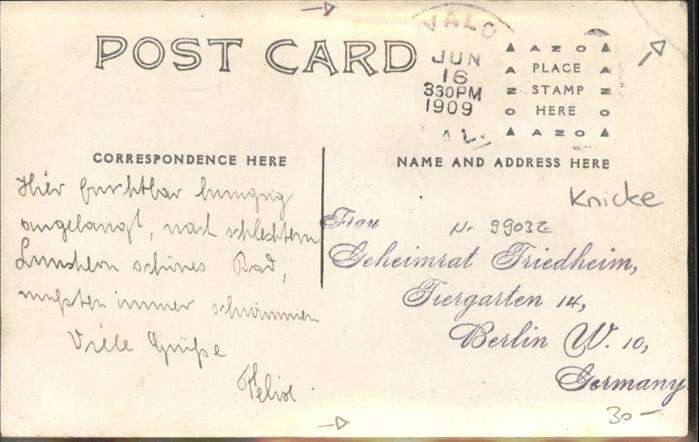 POST CARD
VALO
JUN
16
330PM
1909
AL.
AZO
PLACE
STAMP
HERE
AZO
CORRESPONDENCE HERE
NAME AND ADDRESS HERE
Hier furchtbar hungrig
angelangt, nach schlechtem
Luncheon schönes Bad,
mußten immer schwimmen
Viele Grüße
Felix
Knicke
Nr 99032
Frau
Geheimrat Friedheim,
Tiergarten 14,
Berlin W. 10,
Germany
30-